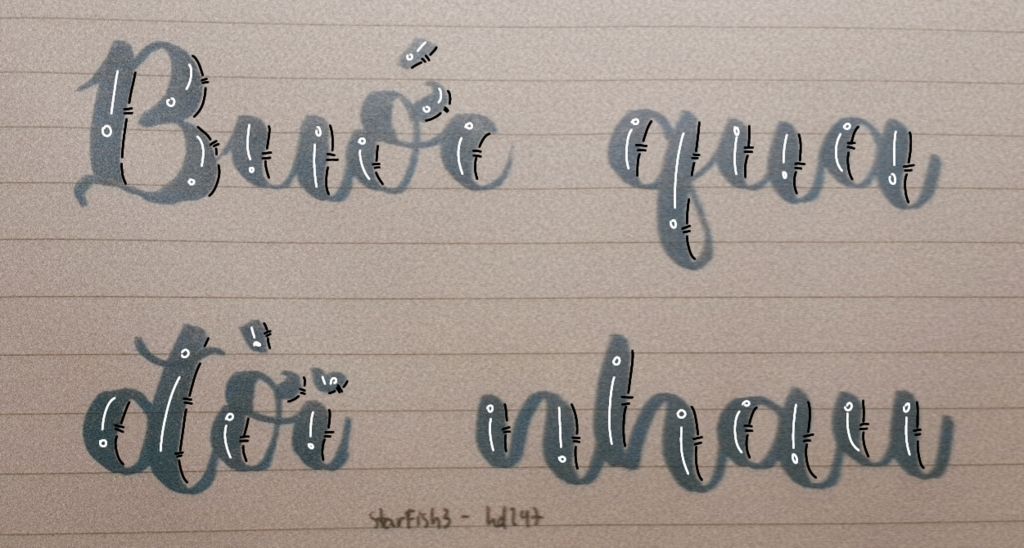 Buớc qua
đời nhau
starFish3 - hd247